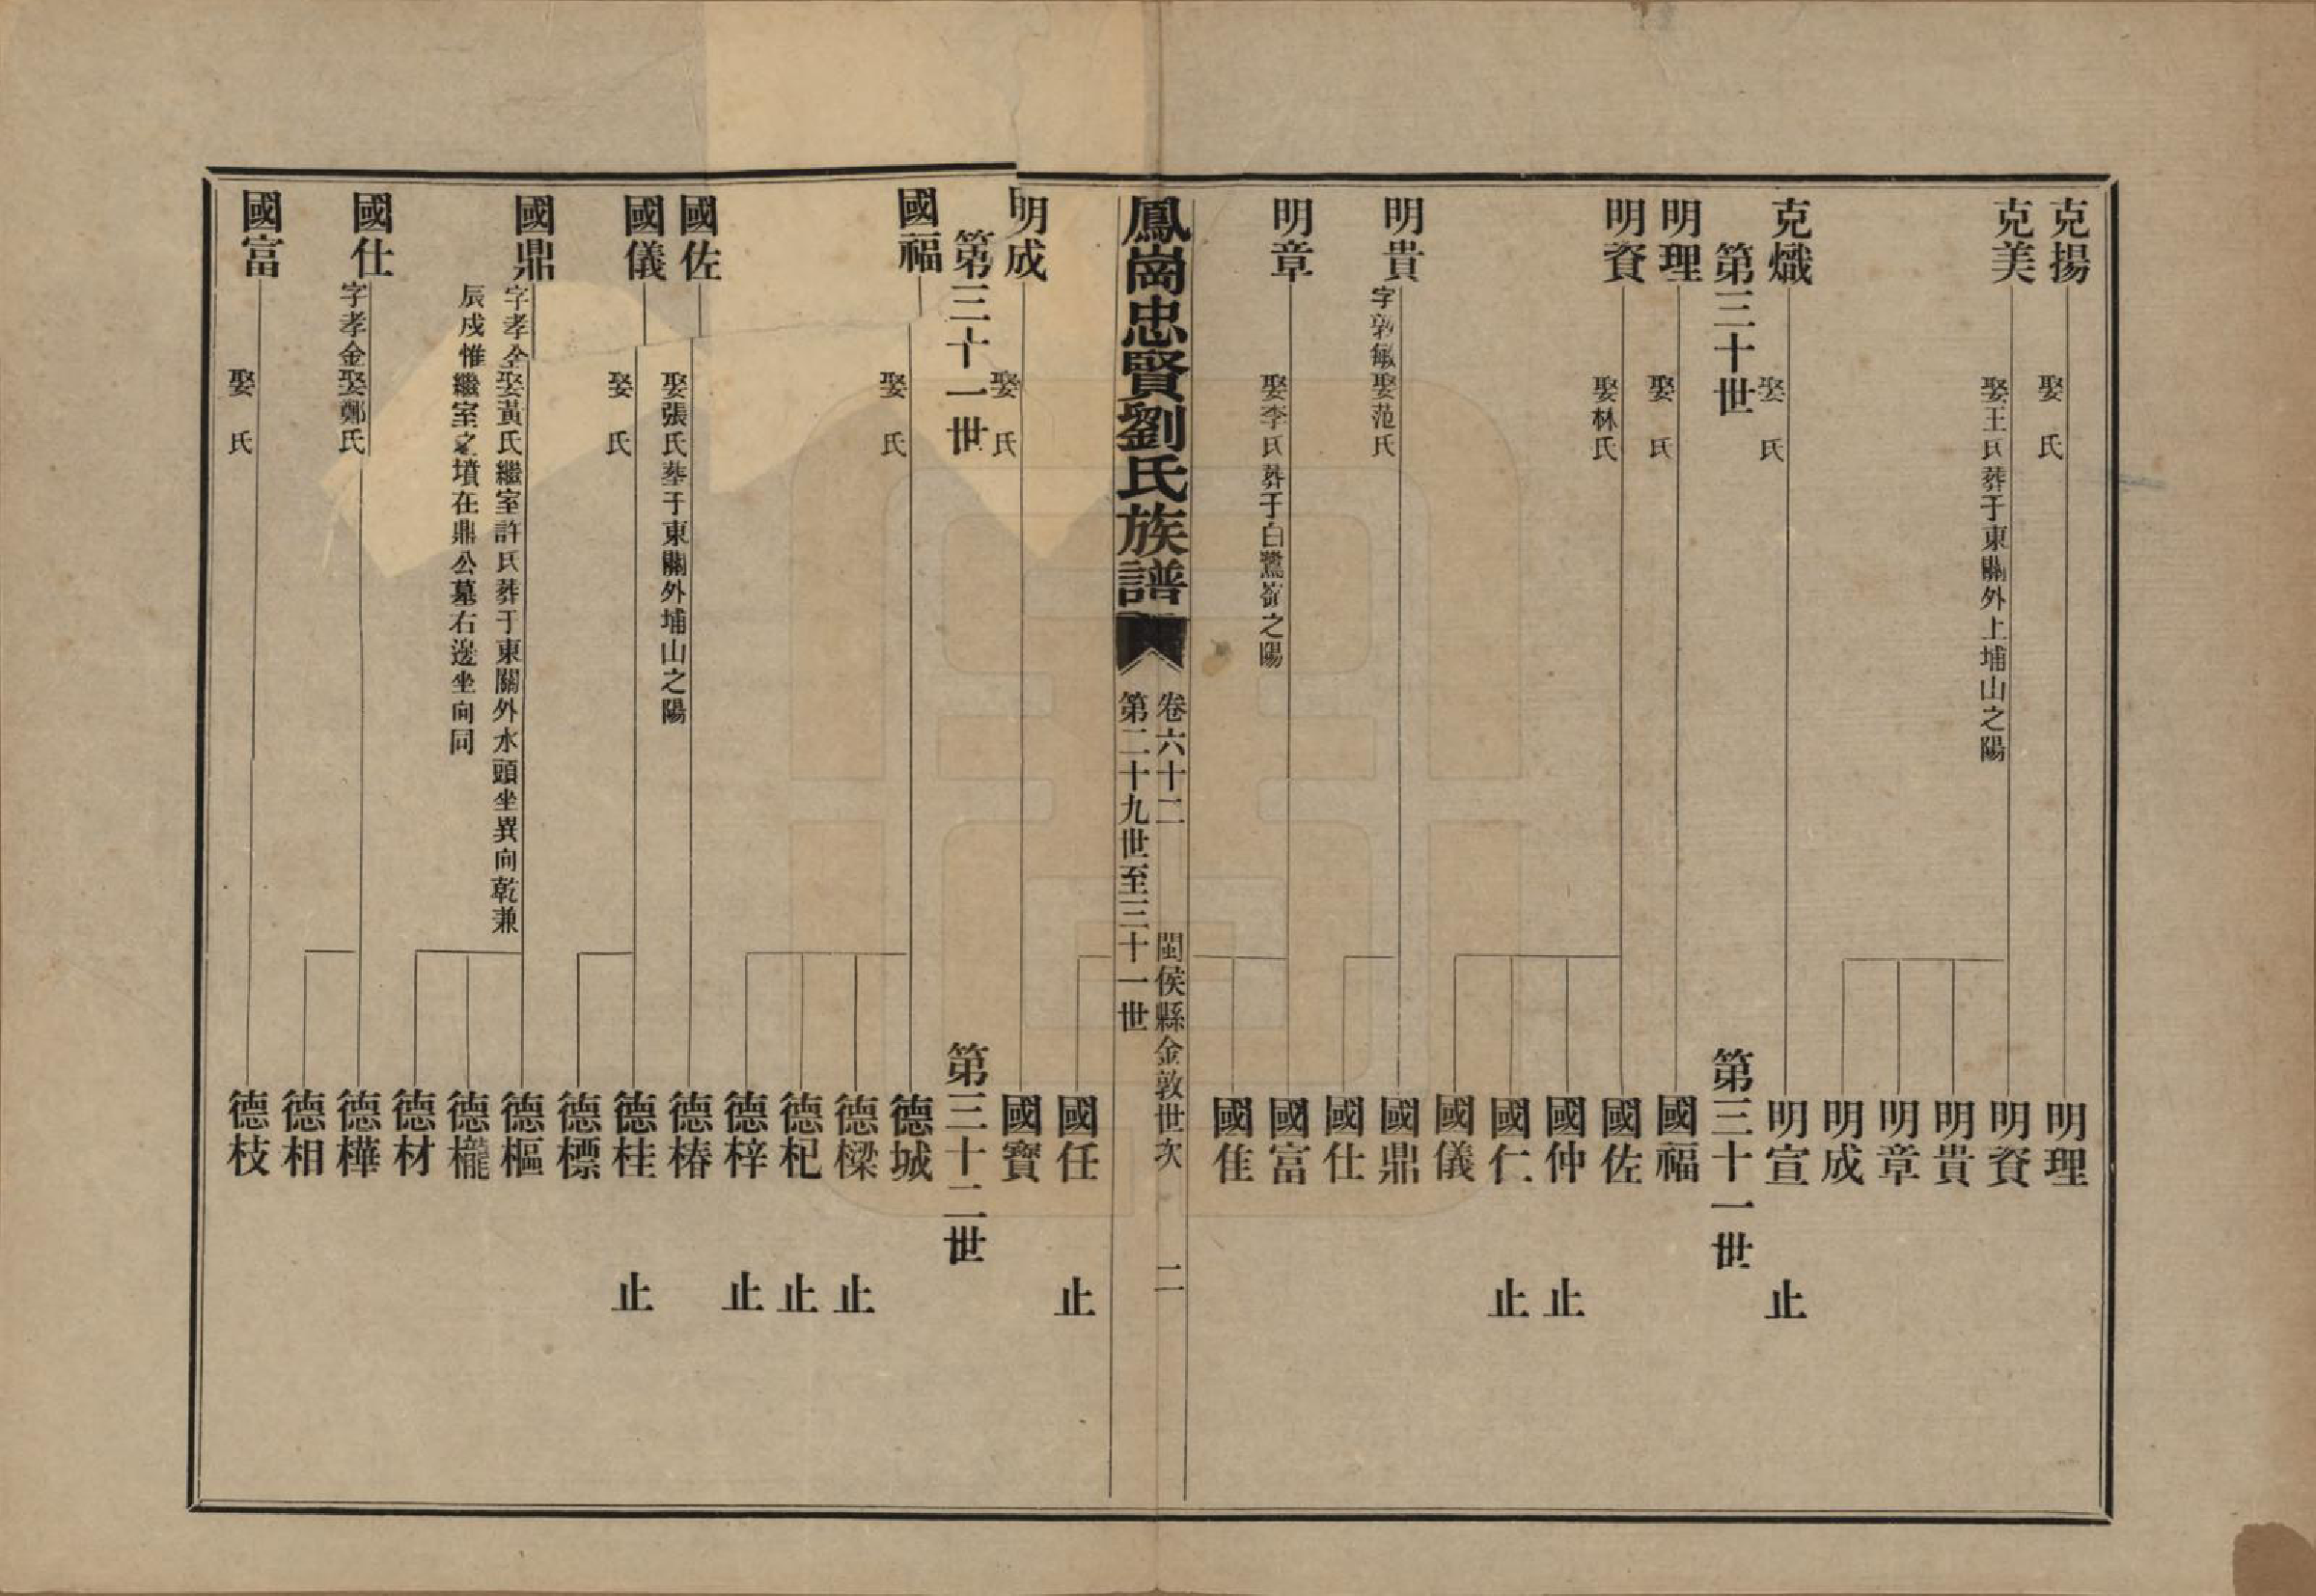 克揚 娶 氏 明理
克美 娶王氏葬于東關外上埔山之陽 明資
明貴
明章
明成
克熾 娶 氏 明宣 止
第三十世 第三十一世
明理 娶 氏 國福
明資 娶林氏 國佐
國仲 止
國仁 止
國儀
明貴 字敦敏娶范氏 國鼎
國仕
明章 娶李氏葬于白鷺嶺之陽 國富
國佳
鳳崗忠賢劉氏族譜
卷六十二 閩侯縣金敦世次 二
第二十九世至三十一世
國任 止
明成 娶 氏 國寶
第三十一世 第三十二世
國福 娶 氏 德城
德樑 止
德杞 止
德梓 止
國佐 娶張氏塟于東關外埔山之陽 德椿
國儀 娶 氏 德桂 止
德標
國鼎 字孝全娶黃氏繼室許氏葬于東關外水頭坐異向乾兼 德樞
辰戍惟繼室之墳在鼎公墓右邊坐向同 德櫳
德材
國仕 字孝金娶鄭氏 德樺
德相
國富 娶 氏 德枝